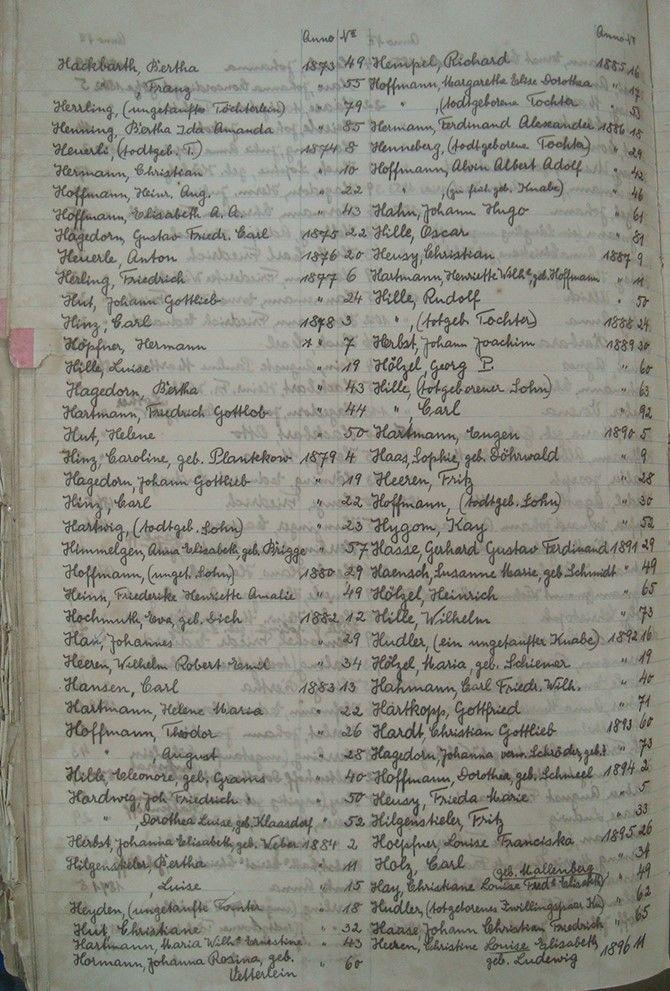 Anno No
Hackbarth, Bertha 1873 49
" Franz " 55
Herrling, (ungetauftes Töchterlein) " 79
Henning, Bertha Ida Amanda " 85
Heuerli (todtgeb. T.) 1874 8
Hermann, Christian " 10
Hoffmann, Heinr. Aug. " 22
Hoffmann, Elisabeth A. A. " 43
Hagedorn, Gustav Friedr. Carl 1875 22
Heuerle, Anton 1876 20
Herling, Friedrich 1877 6
Hut, Johann Gottlieb " 24
Hinz, Carl 1878 3
Höpfner, Hermann " 7
Hille, Luise " 19
Hagedorn, Bertha " 43
Hartmann, Friedrich Gottlob " 44
Hut, Helene " 50
Hinz, Caroline, geb. Plantekow 1879 4
Hagedorn, Johann Gottlieb " 19
Hinz, Carl " 22
Hartwig, (todtgeb. Sohn) " 23
Himmelgen, Anna Elisabeth, geb. Brigge " 57
Hoffmann, (unget. Sohn) 1880 29
Heinn, Friederike Henriette Amalie " 49
Hochmuth, Eva, geb. Dich 1882 12
Han, Johannes " 29
Heeren, Wilhelm Robert Emil " 34
Hansen, Carl 1883 13
Hartmann, Helene Maria " 22
Hoffmann, Theodor " 26
" August " 28
Hille, Eleonore, geb. Grams " 40
Hardwig, Joh. Friedrich " 50
" , Dorothea Luise, geb. Klaasdorf " 52
Herbst, Johanna Elisabeth, geb. Weber 1884 2
Hilgensteler, Bertha " 11
" Luise " 15
Heyden, (ungetaufte Tochter " 18
Hut, Christiane " 32
Hartmann, Maria Wilh. Ernestine " 43
Hormann, Johanna Rosina, geb. " 60
Vetterlein
Anno No
Hempel, Richard 1885 16
Hoffmann, Margaretha Elise Dorothea " 17
" , (todtgeborene Tochter " 53
Hermann, Ferdinand Alexander 1886 18
Henneberg, (todtgeborene Tochter) " 29
Hoffmann, Alvin Albert Adolf " 42
" , (zu früt geb. Knabe) " 46
Hahn, Johann Hugo " 61
Hille, Oscar " 81
Heusy, Christian 1887 9
Hartmann, Henriette Wilhe, geb. Hoffmann " 11
Hille, Rudolf " 50
" , (totgeb. Tochter) 1888 24
Herbst, Johann Joachim 1889 30
Hölzel, Georg P. " 60
Hille, (totgeborener Sohn) " 63
" Carl " 92
Hartmann, Eugen 1890 5
Haas, Sophie, geb. Döhrwald " 9
Heeren, Fritz " 28
Hoffmann, (todtgeb. Sohn) " 30
Hygom, Kay " 52
Hasse, Gerhard Gustav Ferdinand 1891 29
Haensch, Susanne Marie, geb. Schmidt " 49
Hölzel, Heinrich " 65
Hille, Wilhelm " 73
Hudler, (ein ungetaufter Knabe) 1892 16
Hölzel, Maria, geb. Schiemer " 19
Hahmann, Carl Friedr. Wilh. " 40
Hartkopp, Gottfried " 71
Hardt, Christian Gottlieb 1893 60
Hagedorn, Johanna verw. Schröder, geb. ? " 73
Hoffmann, Dorothea, geb. Schmeel 1894 2
Heusy, Frieda Marie " 5
Hilgenstieler, Fritz " 33
Hoepfner, Louise Franciska 1895 26
Holz, Carl " 34
geb. Mallenberg
Hay, Christiane Louise Fred. Elisabeth " 49
Hudler, (totgeborenes Zwillingspaar " 62
Haase, Johann Christian Friedrich " 65
Heeren, Christine Louise Elisabeth 1896 11
geb. Ludewig